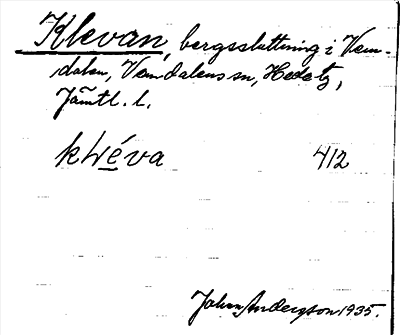 Klevan, bergssluttning i Vem-
dalen, Vemdalens sn, Hedetg,
Jämtl. l.
klléva 412
Johan Anderzson 1935.